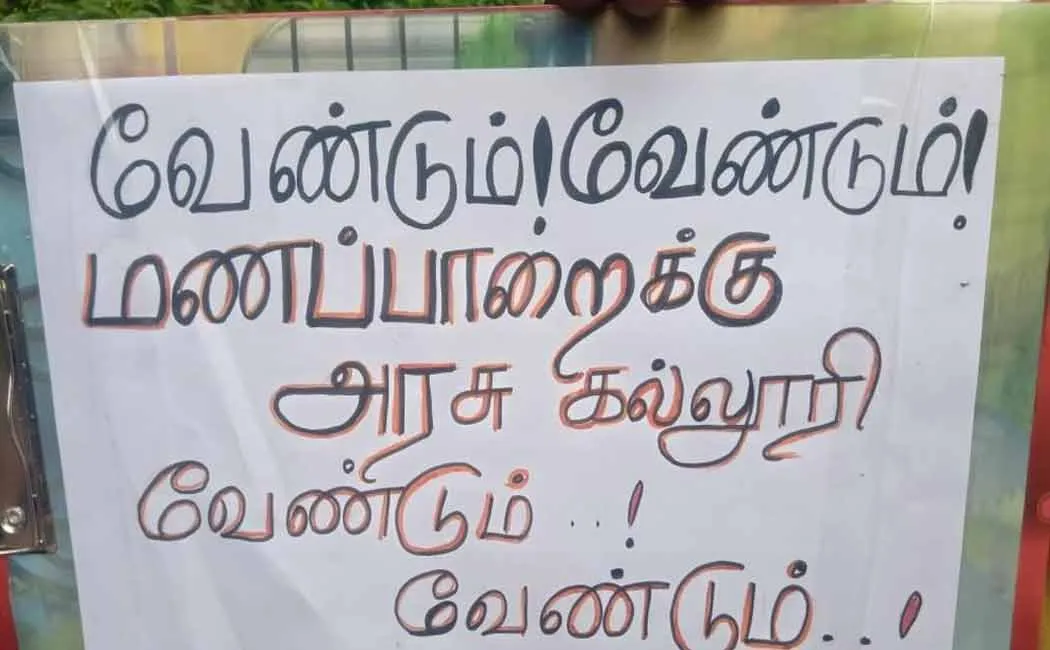 வேண்டும்!வேண்டும்!
மணப்பாறைக்கு
அரசு கல்லூரி
வேண்டும் ..!
வேண்டும்..!